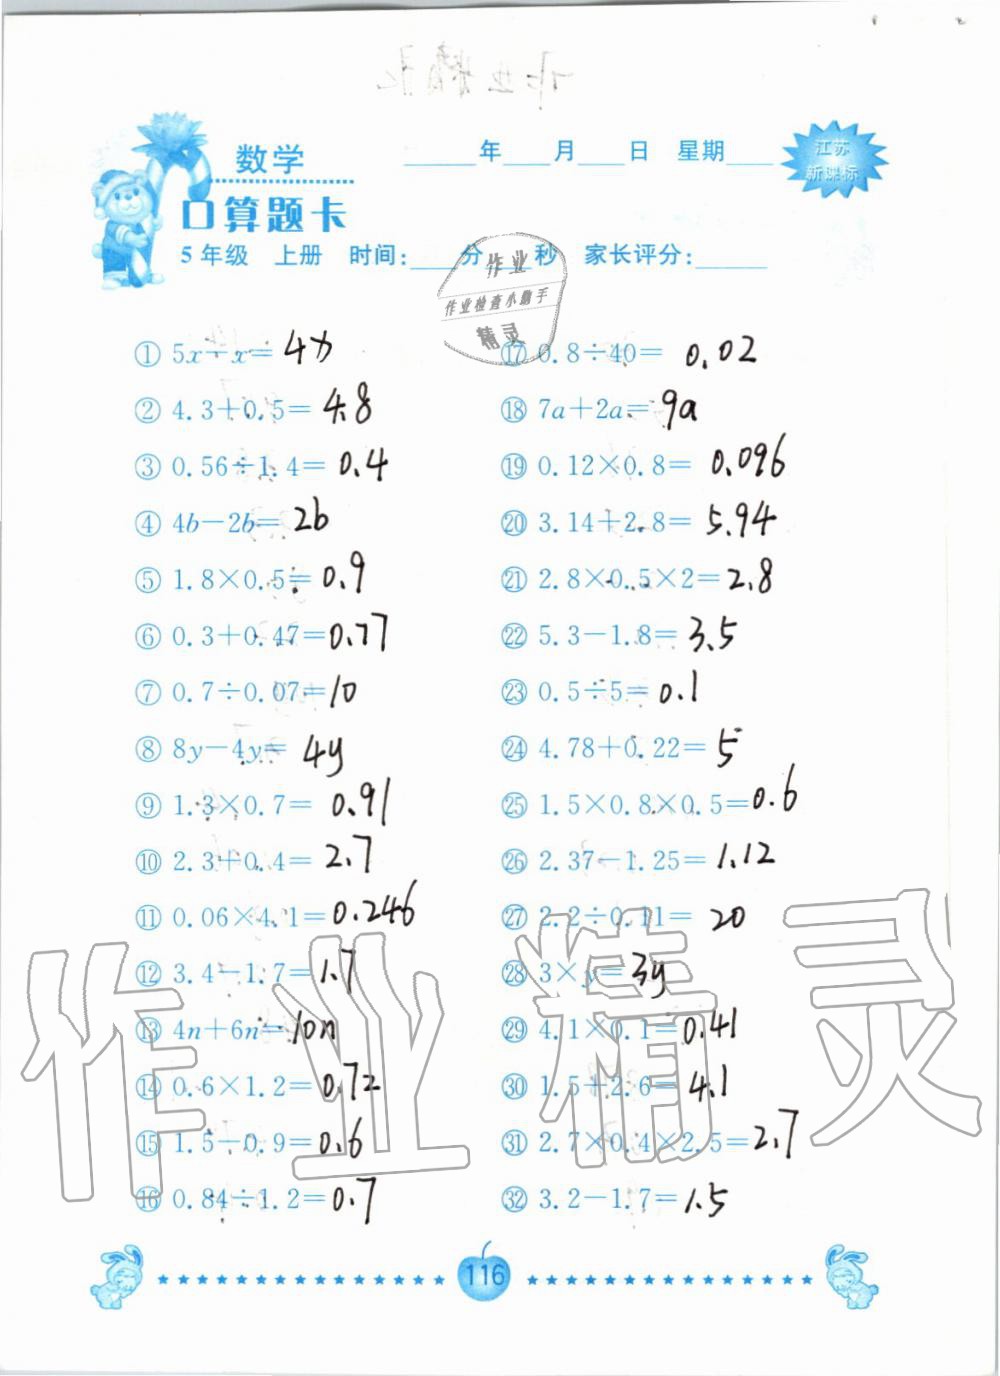 数学
____年___月___日 星期___
江苏
新课标
口算题卡
5年级 上册 时间:___分___秒 家长评分:_____
作业
作业检查小助手
精灵
① 5x-x= 4x
② 4.3+0.5= 4.8
③ 0.56÷1.4= 0.4
④ 4b-2b= 2b
⑤ 1.8×0.5= 0.9
⑥ 0.3+0.47= 0.77
⑦ 0.7÷0.07= 10
⑧ 8y-4y= 4y
⑨ 1.3×0.7= 0.91
⑩ 2.3+0.4= 2.7
⑪ 0.06×4.1= 0.246
⑫ 3.4-1.7= 1.7
⑬ 4n+6n= 10n
⑭ 0.6×1.2= 0.72
⑮ 1.5-0.9= 0.6
⑯ 0.84÷1.2= 0.7
⑰ 0.8÷40= 0.02
⑱ 7a+2a= 9a
⑲ 0.12×0.8= 0.096
⑳ 3.14+2.8= 5.94
㉑ 2.8×0.5×2= 2.8
㉒ 5.3-1.8= 3.5
㉓ 0.5÷5= 0.1
㉔ 4.78+0.22= 5
㉕ 1.5×0.8×0.5= 0.6
㉖ 2.37-1.25= 1.12
㉗ 2.2÷0.11= 20
㉘ 3×y= 3y
㉙ 4.1×0.1= 0.41
㉚ 1.5+2.6= 4.1
㉛ 2.7×0.4×2.5= 2.7
㉜ 3.2-1.7= 1.5
作业精灵
116